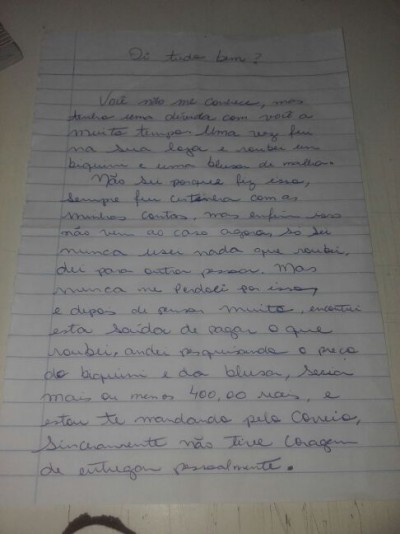 Oi tudo bem?
Você não me conhece, mas
tenho uma dívida com você a
muito tempo. Uma vez fui
na sua loja e roubei um
biquini e uma blusa de malha.
Não sei porque fiz isso,
sempre fui certinha com as
minhas contas, mas enfim isso
não vem ao caso agora, so sei
nunca usei nada que roubei,
dei para outras pessoas. Mas
nunca me perdoei por isso,
e depois de pensar muito, encontrei
esta saída de pagar o que
roubei, andei pesquisando o preço
do biquini e da blusa, seria
mais ou menos 400,00 reais, e
estou te mandando pelo Correio,
Sinceramente não tive coragem
de entregar pessoalmente.